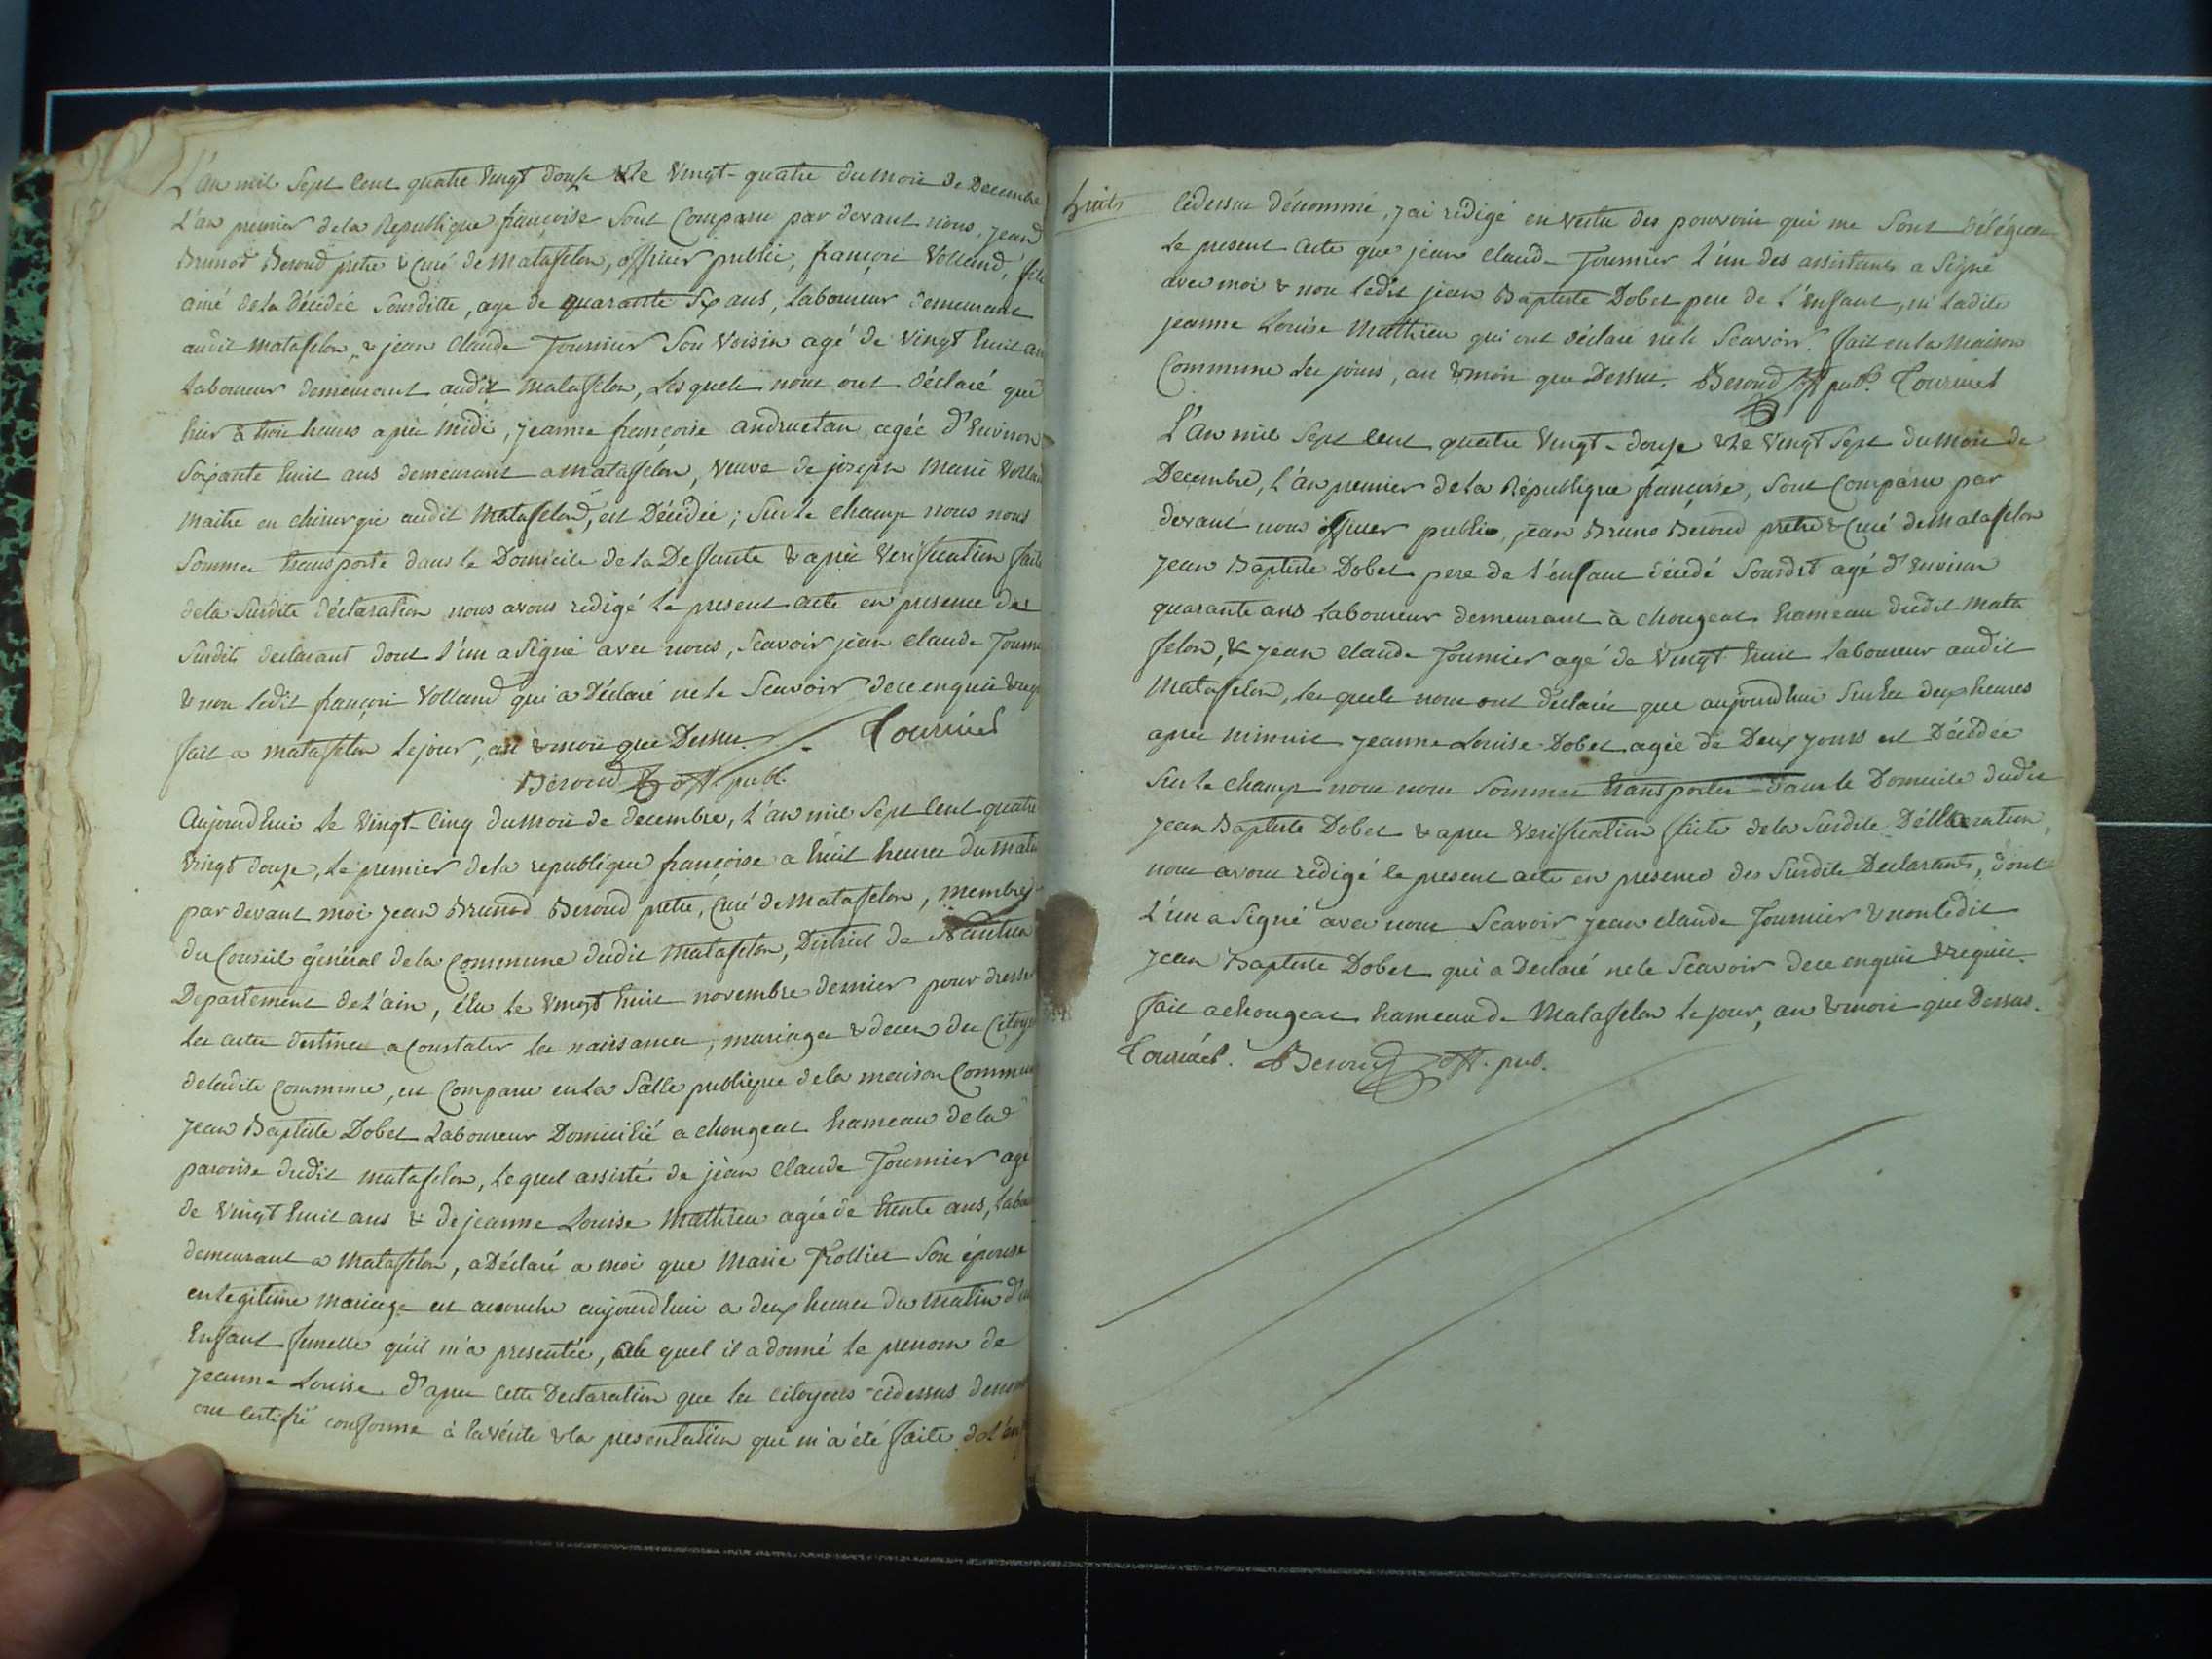 L'an mil sept cent quatre vingt douze & le vingt-quatre du mois de Decembre
L'an premier de la Republique françoise sont comparu par devant nous, jean
Brunod Beroud prêtre & curé de Matafelon, officier public, françois Volland, fils
ainé de la décédée sousditte, age de quarante six ans, laboureur demeurant
audit matafelon, & jean claude Fournier son voisin agé de vingt huit ans
Laboureur demeurant audit matafelon, Lesquels nous ont déclaré que
hier à trois heures après midi, jeanne françoise andruetan agée d'environ
soixante huit ans demeurant a matafelon, veuve de joseph Marie Volland
maitre en chirurgie audit Matafelon, est Décédée; sur le champ nous nous
sommes transporté dans le Domicile de la Deffunte & après verification faite
de la susdite déclaration nous avons redigé le present acte en presence des
susdits declarant dont l'un a signé avec nous, scavoir jean claude Fournier
& non ledit françois Volland qui a Déclaré ne le scavoir de ce enquis & requis
fait a matafelon le jour, an & mois que Dessus. Tournier
Beroud off. publ.
Aujourdhui le vingt-cinq du mois de decembre, l'an mil sept cent quatre
vingt douze, le premier de la republique françoise a huit heures du matin
par devant moi jean Brunod Beroud prêtre, curé de Matafelon, membre
du conseil général de la commune dudit Matafelon, District de Nantua
Departement de l'ain, élu le vingt huit novembre dernier pour dresser
les actes destinés a constater les naissances, mariages & deces des citoyens
de ladite commune, est comparu en la salle publique de la maison commune
jean Baptiste Dobet Laboureur Domicilié a chougeat hameau de la
paroisse dudit matafelon, lequel assisté de jean claude Fournier agé
de vingt huit ans & de jeanne Louise Mathieu agée de trente ans,
demeurant a Matafelon, a Déclaré a moi que Marie Frollier son épouse
en legitime mariage est accouche aujourdhui a deux heures du matin d'un
Enfant femelle qu'il m'a presentée, quel il a donné le prenom de
Jeanne Louise d'après cette Declaration que les citoyens cidessus denommé
ont certifié conforme à la vérité & la presentation qui m'a été faite de l'enf
huit
cidessus dénommé, j'ai redigé en vertu des pouvoirs qui me sont délégués
le present acte que jean claude Fournier l'un des assistants a signé
avec moi & non ledit jean Baptiste Dobet pere de l'enfant, ni ladite
jeanne Louise Mathieu qui ont déclaré ne le scavoir. fait en la maison
Commune les jours, an & mois que Dessus. Beroud off pub. Tournier
L'an mil sept cent quatre vingt-douze & le vingt sept du mois de
Decembre, l'an premier de la République françoise, sont comparu par
devant nous officier public, jean Bruno Beroud prêtre & curé de Matafelon
jean Baptiste Dobet pere de l'enfant décédé sousdit agé d'environ
quarante ans laboureur demeurant à chougeat hameau dudit Mata
felon, & jean claude Fournier agé de vingt huit laboureur audit
Matafelon, lesquels nous ont déclarés que aujourdhui sur les deux heures
après minuit jeanne Louise Dobet agée de Deux jours est Décédée
sur le champ nous nous sommes transportés dans le Domicile dudit
jean Baptiste Dobet & après verification faite de la susdite Déclaration,
nous avons rédigé le present acte en presence des susdits Declarants, dont
L'un a signé avec nous scavoir jean claude Fournier & non ledit
jean Baptiste Dobet qui a Declaré ne le scavoir de ce enquis & requis.
fait a chougeat hameau de Matafelon le jour, an & mois que Dessus.
Tournier. Beroud off. pub.